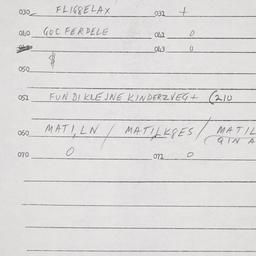 030 FLIGGELAX 031 +
040 GOC FERDELE 041 0
043 0
050
051 FUN DI KLEJNE KINDERZVEG+ (210
060 MATI, LN / MATILKGES / MATIL
GIN A
070 0 071 0